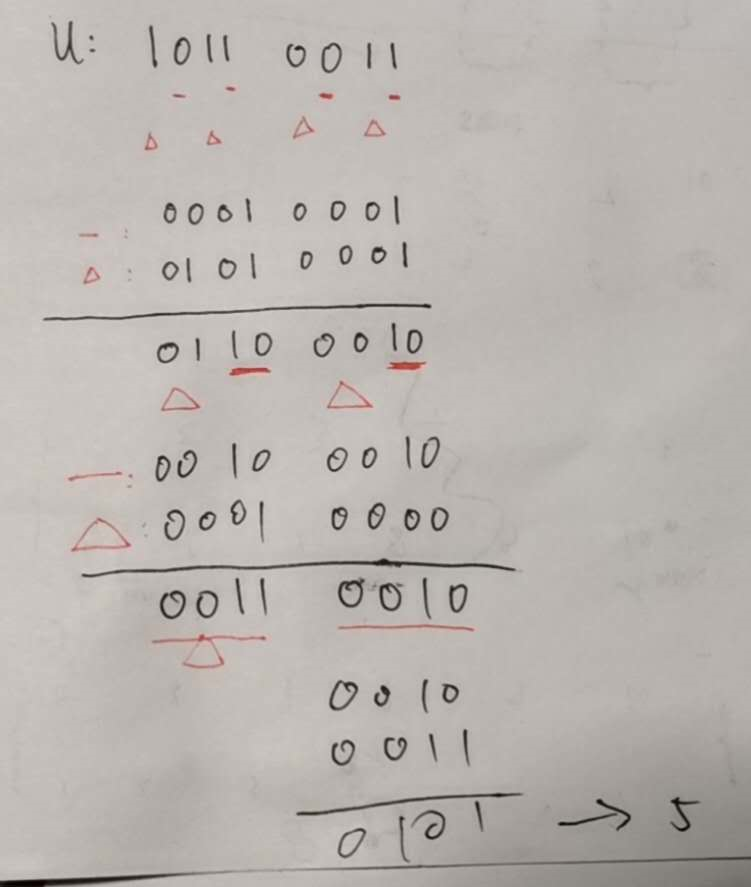 U: 1011 0011
- - - -
△ △ △ △
- : 0001 0001
△ : 0101 0001
0110 0010
△ △
—: 0010 0010
△: 0001 0000
0011 0010
△
0010
0011
0101 → 5